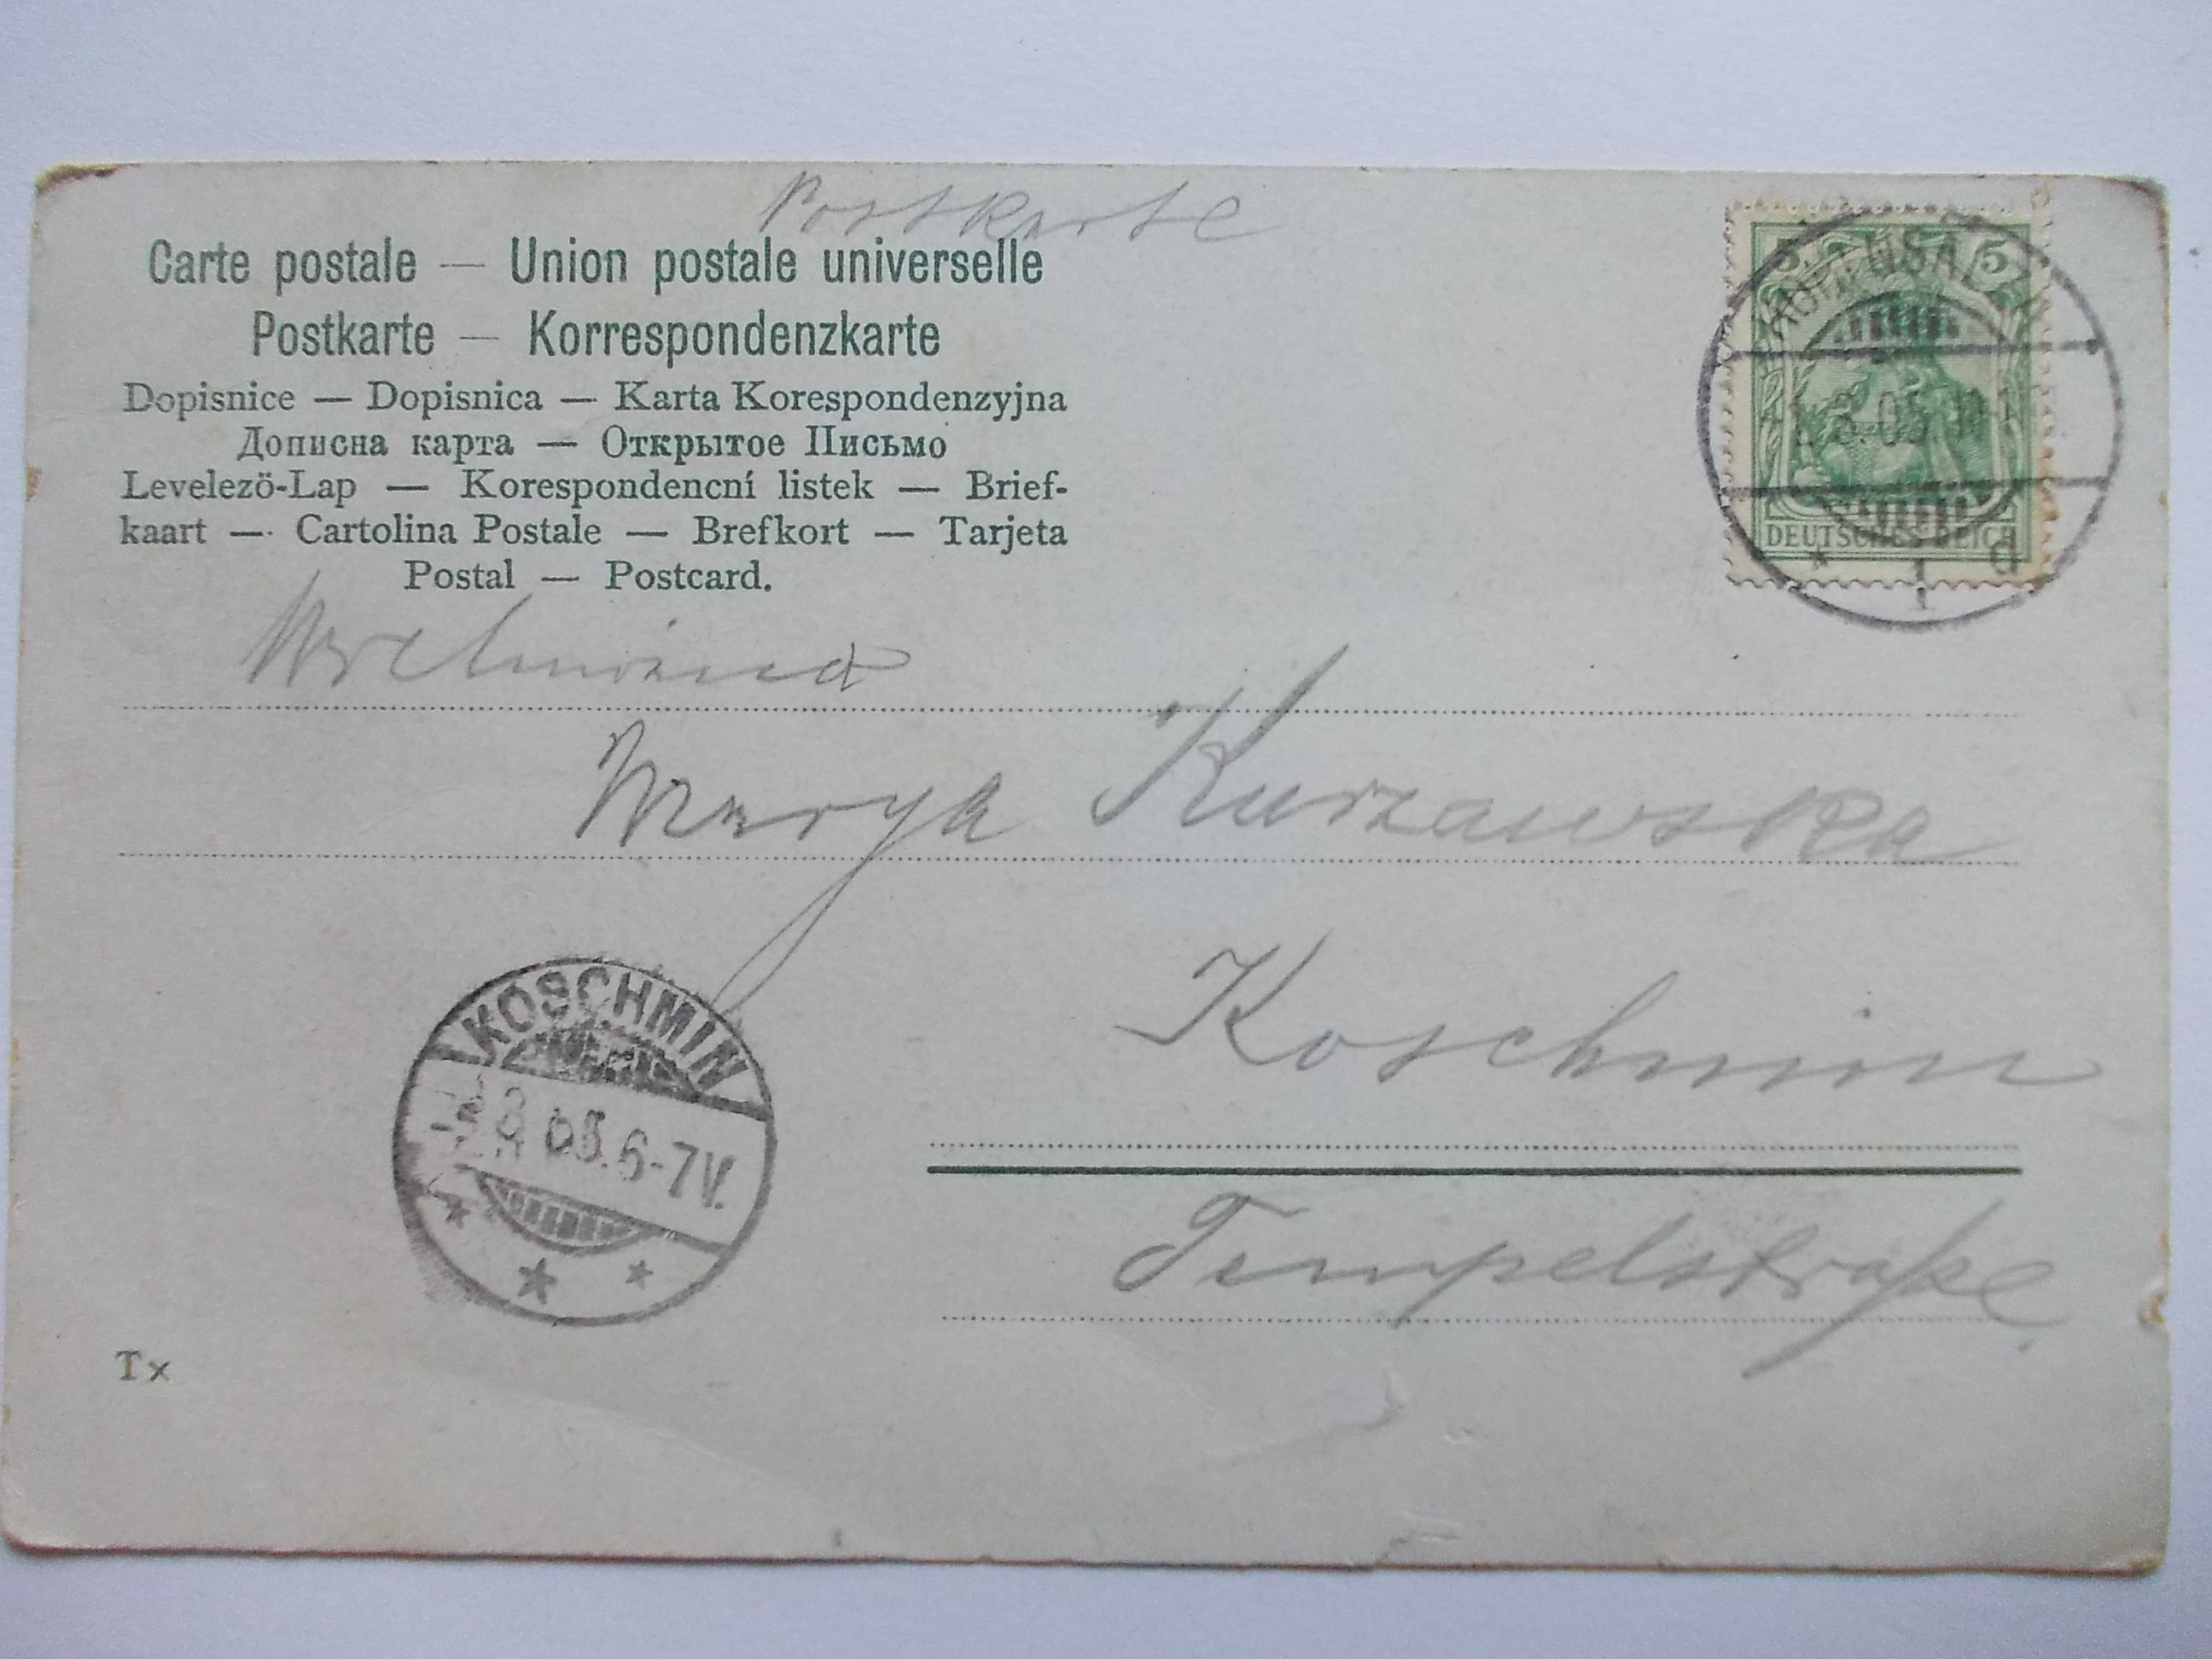 Postkarte
Carte postale — Union postale universelle
Postkarte — Korrespondenzkarte
Dopisnice — Dopisnica — Karta Korespondenzyjna
Дописна карта — Открытое Письмо
Levelezö-Lap — Korespondencní listek — Brief-
kaart — Cartolina Postale — Brefkort — Tarjeta
Postal — Postcard.
5 5
DEUTSCHES REICH
1 d
Marya Kurzawska
Koschmin
KOSCHMIN
6-7V.
Tempelstraße.
Tx